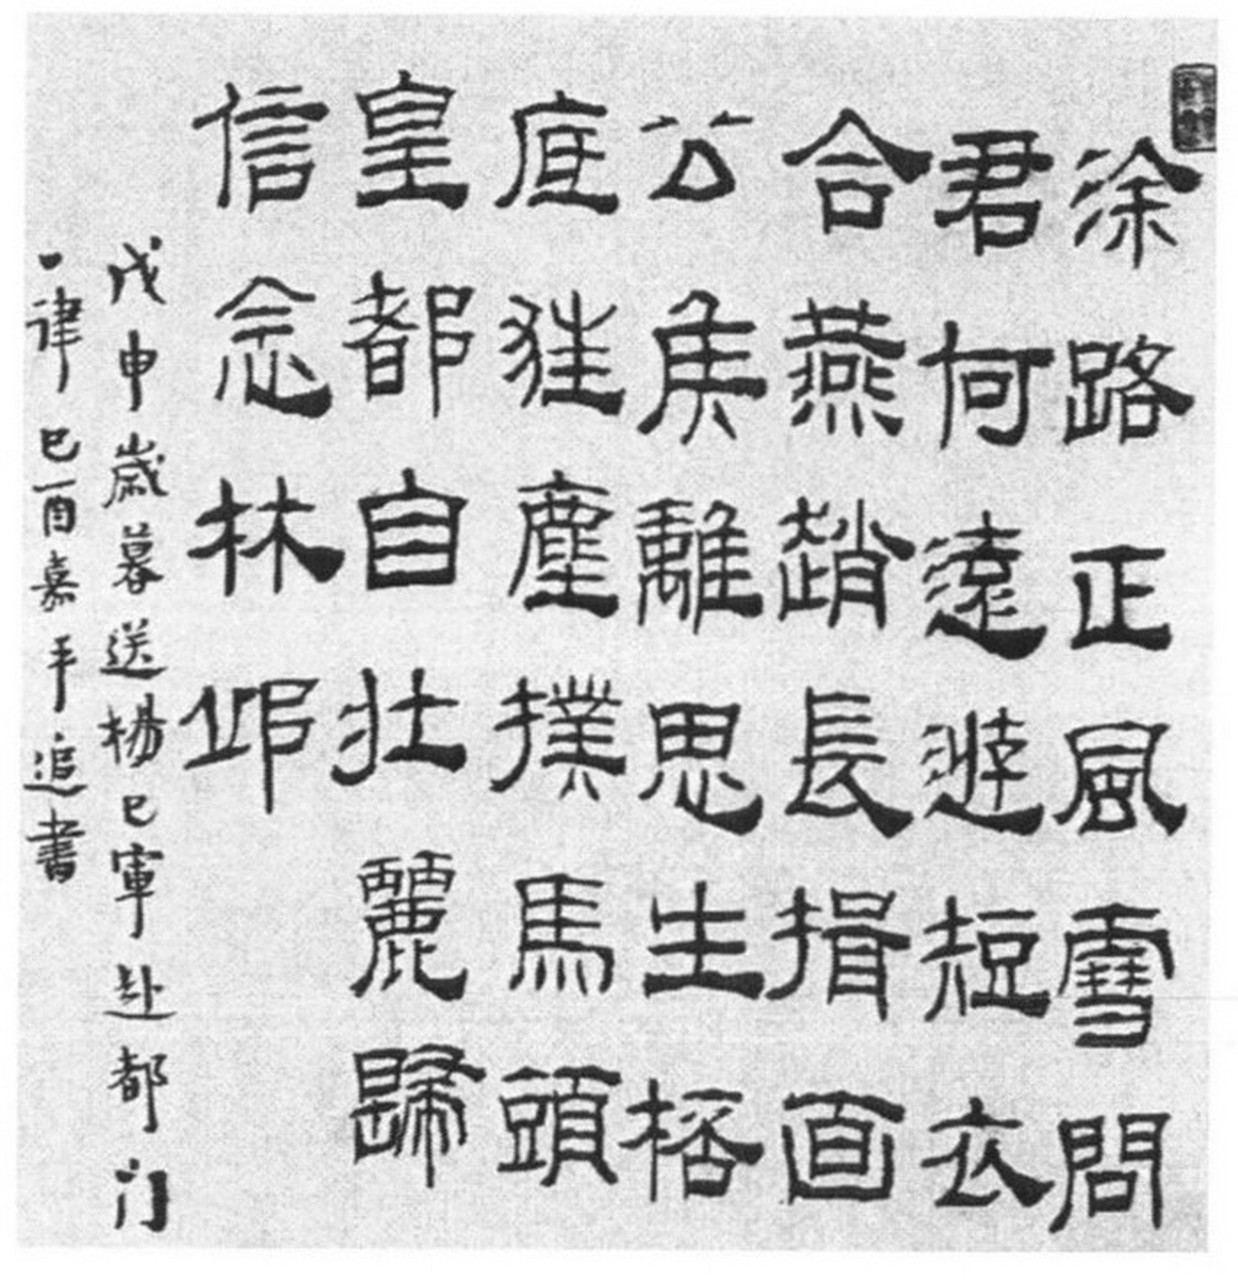 涂路正風雪問
君何遠遊短衣
合燕趙長揖直
公侯離思生桮
底狂塵撲馬頭
皇都自壯麗歸
信念林邱
戊申歲暮送楊巳軍赴都门
一律己酉嘉平追書